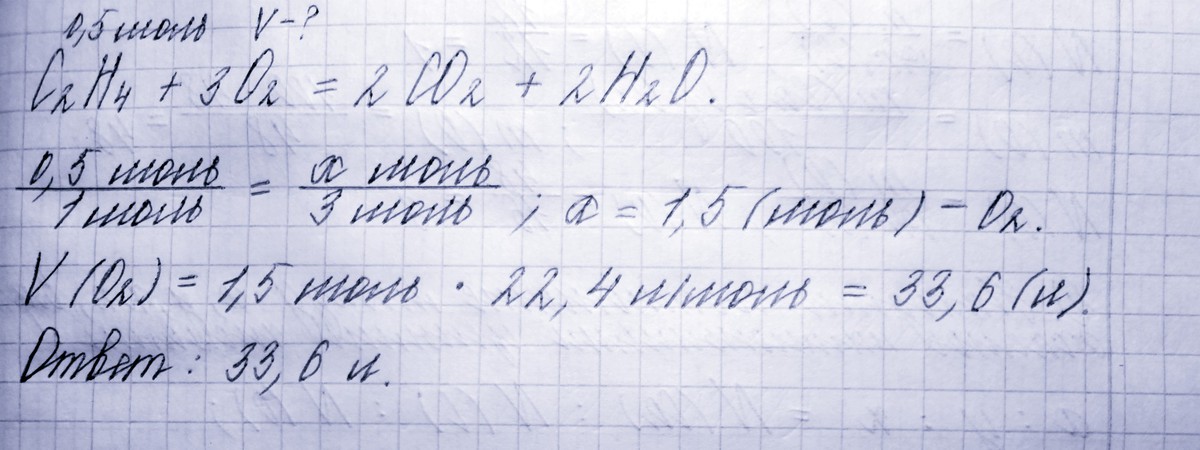 0,5 моль V-?
C₂H₄ + 3O₂ = 2CO₂ + 2H₂O.
0,5 моль / 1 моль = x моль / 3 моль ; x = 1,5 (моль) - O₂.
V(O₂) = 1,5 моль · 22,4 л/моль = 33,6 (л).
Ответ: 33,6 л.